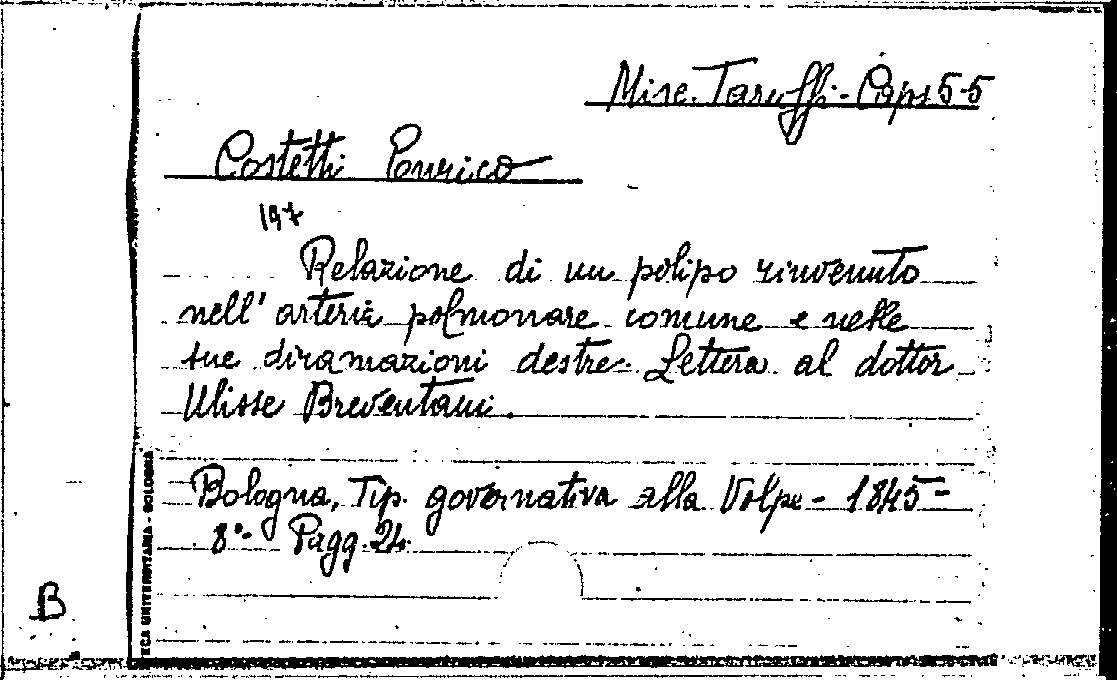 Misc. Taruffi - Caps 5-5
Costetti Enrico
197
Relazione di un polipo rinvenuto
nell' arteria polmonare comune e nelle
sue diramazioni destre - Lettera al dottor
Ulisse Breventani.
Bologna, Tip. governativa alla Volpe - 1845 -
8° - Pagg. 24.
B
ECA UNIVERSITARIA - BOLOGNA